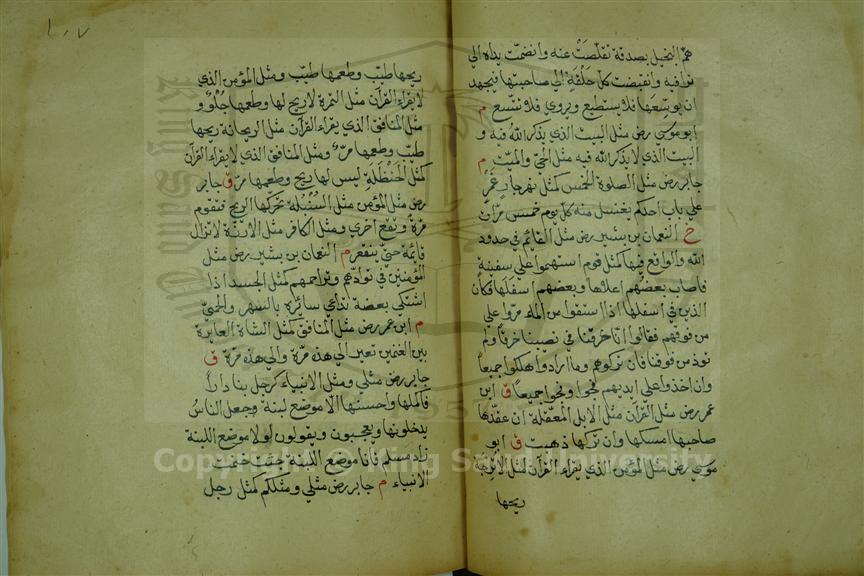 هم البخيل بصدقة تقلصت عنه وانضمت يداه الى
تراقيه وانقبضت كل حلقة الى صاحبتها فيجهد
ان يوسّعها فلا يستطيع ويروي فلا تتسع م
ابو موسي رض مثل البيت الذي يذكر الله فيه و
البيت الذي لا يذكر الله فيه مثل الحيّ والميّت م
جابر رض مثل الصلوة الخمس كمثل نهر جار غمر
علي باب احدكم يغتسل منه كل يوم خمس مرّات
خ النعمان بن بشير رض مثل القائم في حدود
الله والواقع فيها كمثل قوم استهموا علي سفينة
فاصاب بعضهم اعلاها وبعضهم اسفلها فكان
الذين في اسفلها اذا استقوا من الماء مرّوا علي
من فوقهم فقالوا انا خرقنا في نصيبنا خرقا ولم
نوذ من فوقنا فان تركوهم وما ارادوا هلكوا جميعا
وان اخذوا علي ايديهم نجوا ونجوا جميعا ق ابن
عمر رض مثل القرآن مثل الابل المعقّلة ان عقّدها
صاحبها امسكها وان تركها ذهبت ق ابو
موسي رض مثل المؤمن الذي يقراء القرآن كمثل الاترجة
ريحها
١٠٧
ريحها طيّب وطعمها طيّب ومثل المؤمن الذي
لا يقراء القرآن مثل التمرة لا ريح لها وطعمها حلو و
مثل المنافق الذي يقراء القرآن مثل الريحانة ريحها
طيّب وطعمها مرّ ومثل المنافق الذي لا يقراء القرآن
كمثل الحنظلة ليس لها ريح وطعمها مرّ ق جابر
رض مثل المؤمن مثل السنبلة تحركها الريح فتقوم
مرة وتقع اخري ومثل الكافر مثل الارزة لا تزال
قائمة حتي تنقعر م النعمان بن بشير رض مثل
المؤمنين في توادهم وتراحمهم كمثل الجسد اذا
اشتكي بعضه تداعي سائره بالسهر والحمّي
م ابن عمر رض مثل المنافق كمثل الشاة العايرة
بين الغنمين تعير الي هذه مرّة والي هذه مرّة ق
جابر رض مثلي ومثل الانبياء كرجل بنا دارا
فاكملها واحسنها الا موضع لبنة وجعل الناس
يدخلونها ويعجبون ويقولون لولا موضع اللبنة
زاد مسلم فانا موضع اللبنة جئت فختمت
الانبياء م جابر رض مثلي ومثلكم كمثل رجل
Copyright © King Saud University